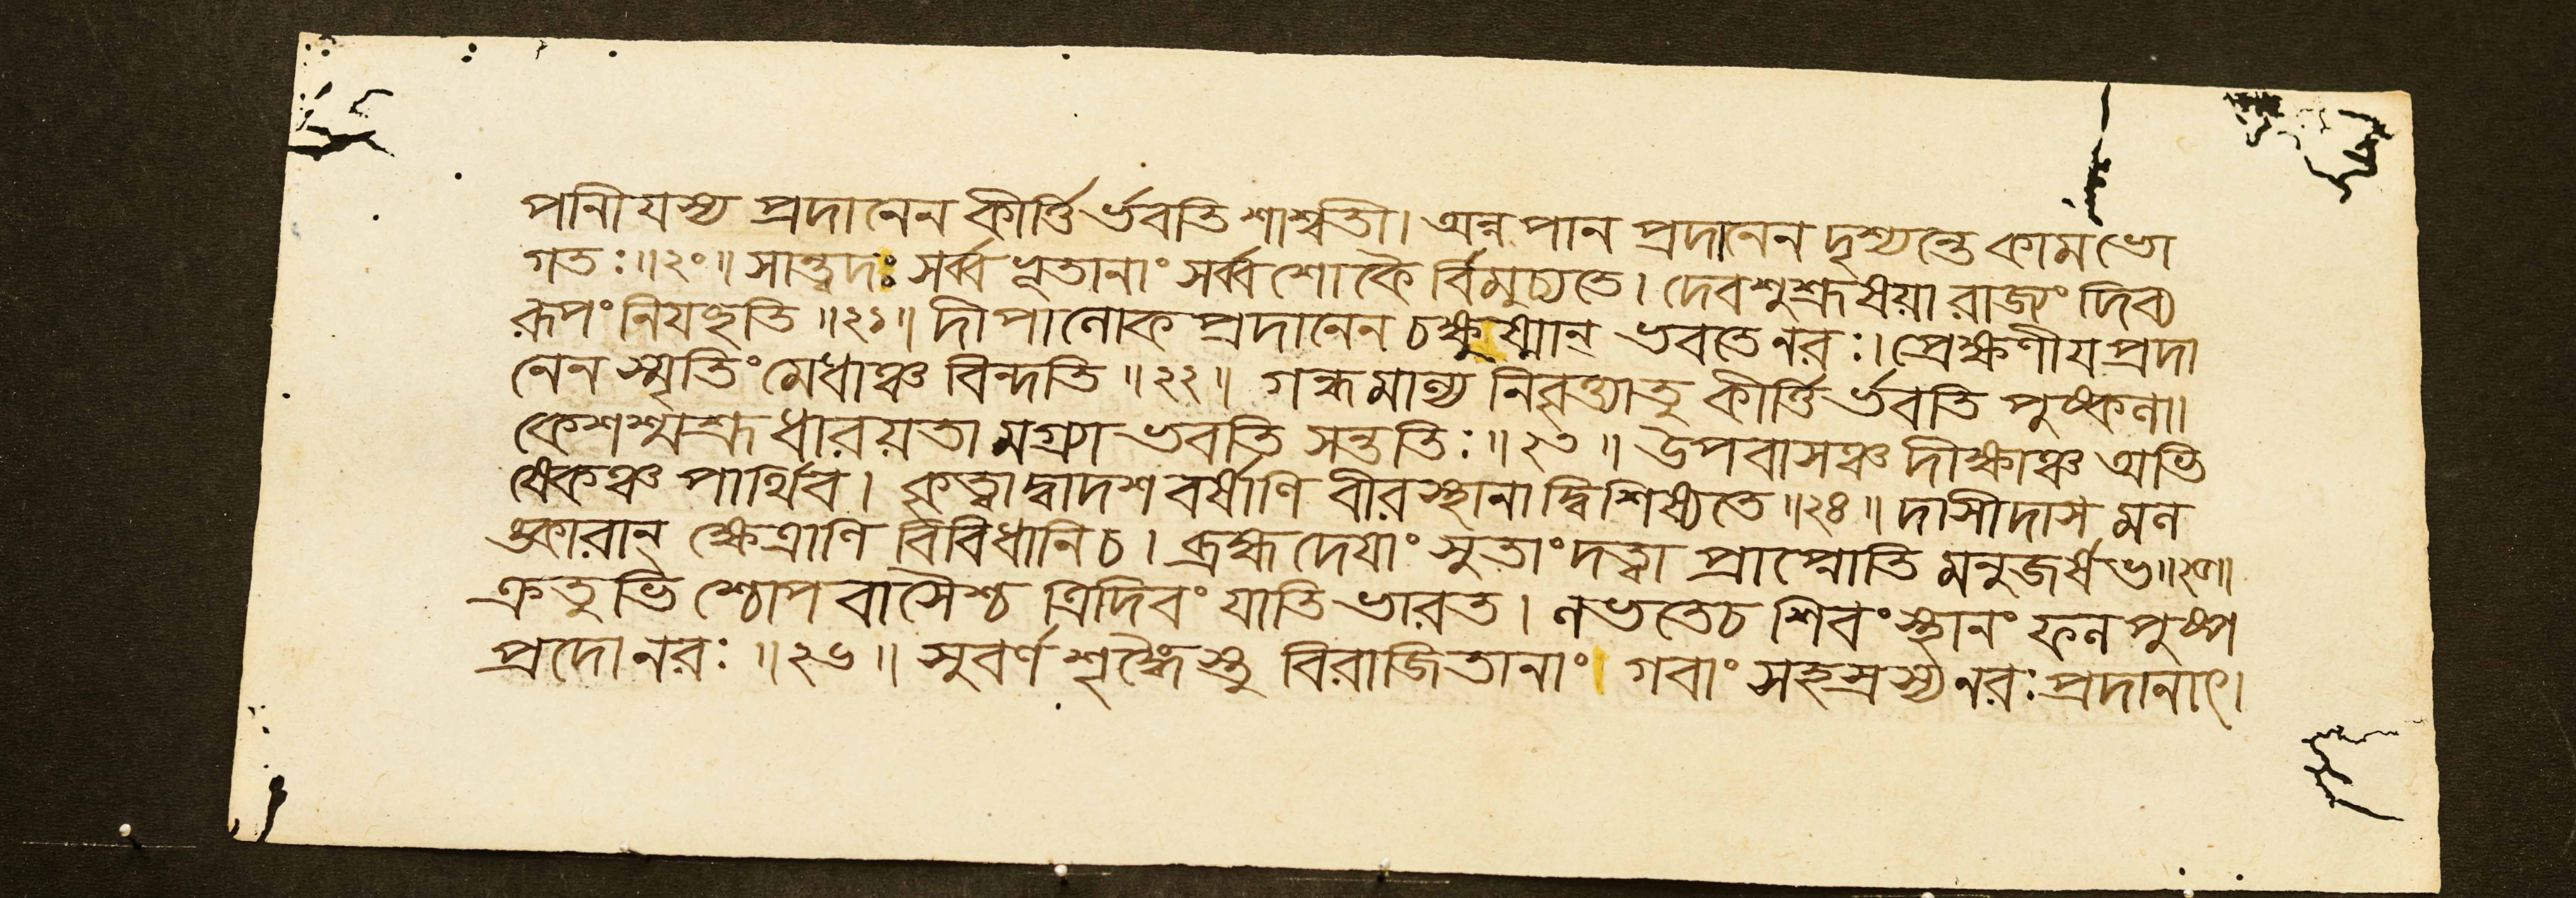 পনীয়স্য প্রদানেন কীর্ত্তির্ভবতি শাশ্বতী। অন্ন পান প্রদানেন দৃশ্যন্তে কামভো
গতঃ॥২০॥ সান্ত্বদঃ সর্ব্বভূতানাং সর্ব্বশোকৈর্বিমুচ্যতে। দেবশুশ্রূষয়া রাজ্যং দিব্য
রূপং নিযচ্ছতি॥২১॥ দীপালোক প্রদানেন চক্ষুষ্মান্ ভবতে নরঃ। প্রেক্ষণীয়প্রদা
নেন স্মৃতিং মেধাঞ্চ বিন্দতি॥২২॥ গন্ধমাল্য নিবৃত্যাতু কীর্ত্তির্ভবতি পুষ্কলা॥
কেশশ্মশ্রূ ধারয়তা মগ্র্যা ভবতি সন্ততিঃ॥২৩॥ উপবাসঞ্চ দীক্ষাঞ্চ অভি
ষেকঞ্চ পার্থিব। কৃত্বা দ্বাদশবর্ষাণি বীরস্থানাদ্বিশিষ্যতে॥২৪॥ দাসীদাস মল
ঙ্কারান্ ক্ষেত্রাণি বিবিধানি চ। ব্রহ্মদেয়াং সুতাং দত্বা প্রাপ্নোতি মনুজর্ষভ॥২৫॥
ক্রতুভিশ্চোপবাসৈশ্চ ত্রিদিবং যাতি ভারত। লভতে চ শিবং স্থানং ফল পুষ্প
প্রদো নরঃ॥২৬॥ সুবর্ণশৃঙ্গৈস্তু বিরাজিতানাং। গবাং সহস্রস্য নরঃ প্রদানাৎ।